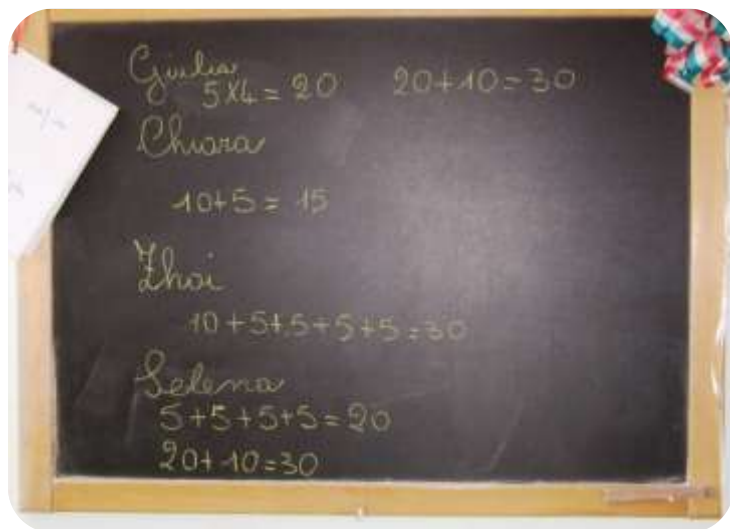 Giulia
5x4=20 20+10=30
Chiara
10+5=15
Zhai
10+5+5+5+5=30
Selena
5+5+5+5=20
20+10=30